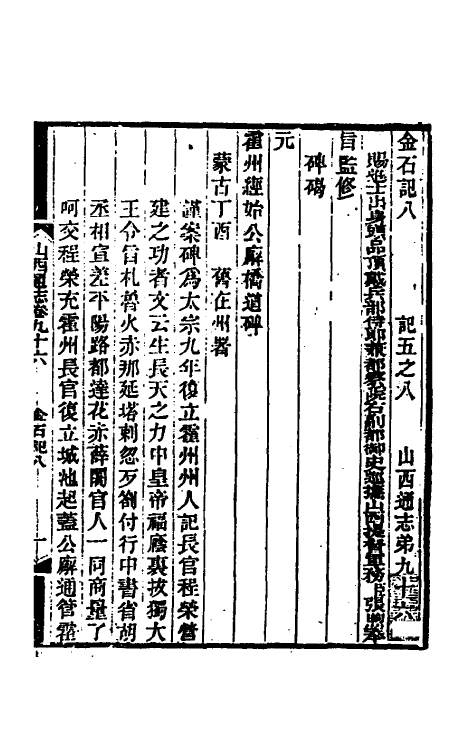 金石記八　記五之八　山西通志弟九十六
賜進士出身頭品頂戴兵部侍郎兼都察院右副都御史巡撫山西提督軍務　張煦奉
旨監修
碑碣
元
霍州經始公廨橋道碑
蒙古丁酉　舊在州署
謹案碑爲太宗九年復立霍州州人記長官程榮營
建之功者文云生長天之力中皇帝福廕裏拔獨大
王令旨札魯火赤那延塔剌忽歹劄付行中書省胡
丞相宣差平陽路都達花赤薛闍官人一同商量了
呵交程榮充霍州長官復立城池起蓋公廨通管霍
山西通志卷九十六　金石記八　一